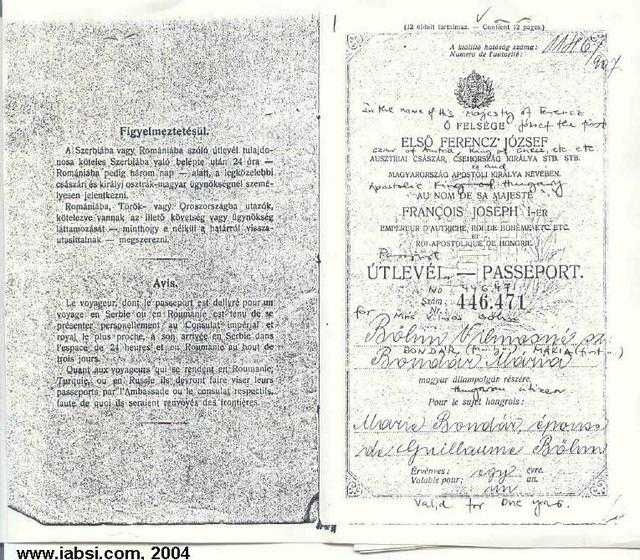 Figyelmeztetésül.
A Szerbiába vagy Romániába szóló útlevél tulajdo-
nosa köteles Szerbiába való belépte után 24 óra —
Romániába pedig három nap — alatt, a legközelebbi
császári és királyi osztrák-magyar ügynökségnél szemé-
lyesen jelentkezni.
Romániába, Török- vagy Oroszországba utazók,
kötelezve vannak az illető követség vagy ügynökség
láttamozását — minthogy e nélkül a határról vissza-
utasíttatnak — megszerezni.
Avis.
Le voyageur, dont le passeport est delivré pour un
voyage en Serbie ou en Roumanie est tenu de se
présenter personellement au Consulat impérial et
royal le plus proche, a son arrivée en Serbie dans
l'espace de 24 heures et en Roumanie au bout de
trois jours.
Quant aux voyageurs qui se rendent en Roumanie,
Turquie, ou en Russie ils devront faire viser leurs
passeports par l'Ambassade ou le consulat respectifs,
faute de quoi ils seraient renvoyés des frontières.
(32 oldalt tartalmaz. — Contient 32 pages.)
A kiállító hatóság száma:
Numero de l'autorité:
in the name of his majesty of Ferencz
Ő FELSÉGE József the first
ELSŐ FERENCZ JÓZSEF
AUSZTRIAI CSÁSZÁR, CSEHORSZÁG KIRÁLYA STB. STB.
and
MAGYARORSZÁG APOSTOLI KIRÁLYA NEVÉBEN.
Apostolic King of Hungary
AU NOM DE SA MAJESTÉ
FRANÇOIS JOSEPH I-ER
EMPEREUR D'AUTRICHE, ROI DE BOHÊME ETC. ETC.
ET
ROI-APOSTOLIQUE DE HONGRIE.
Passport
ÚTLEVÉL. — PASSEPORT.
No 446.471
Szám: 446.471
for Mrs Vilmos Böhm
Böhm Vilmosné sz.
BONDÁR MÁRIA
Bondár Mária
magyar állampolgár részére.
Hungarian citizen
Pour le sujet hongrois:
Marie Bondár, épouse
de Guillaume Böhm
Érvényes: egy évre.
Valable pour: un an.
Valid for one year.
www.iabsi.com, 2004